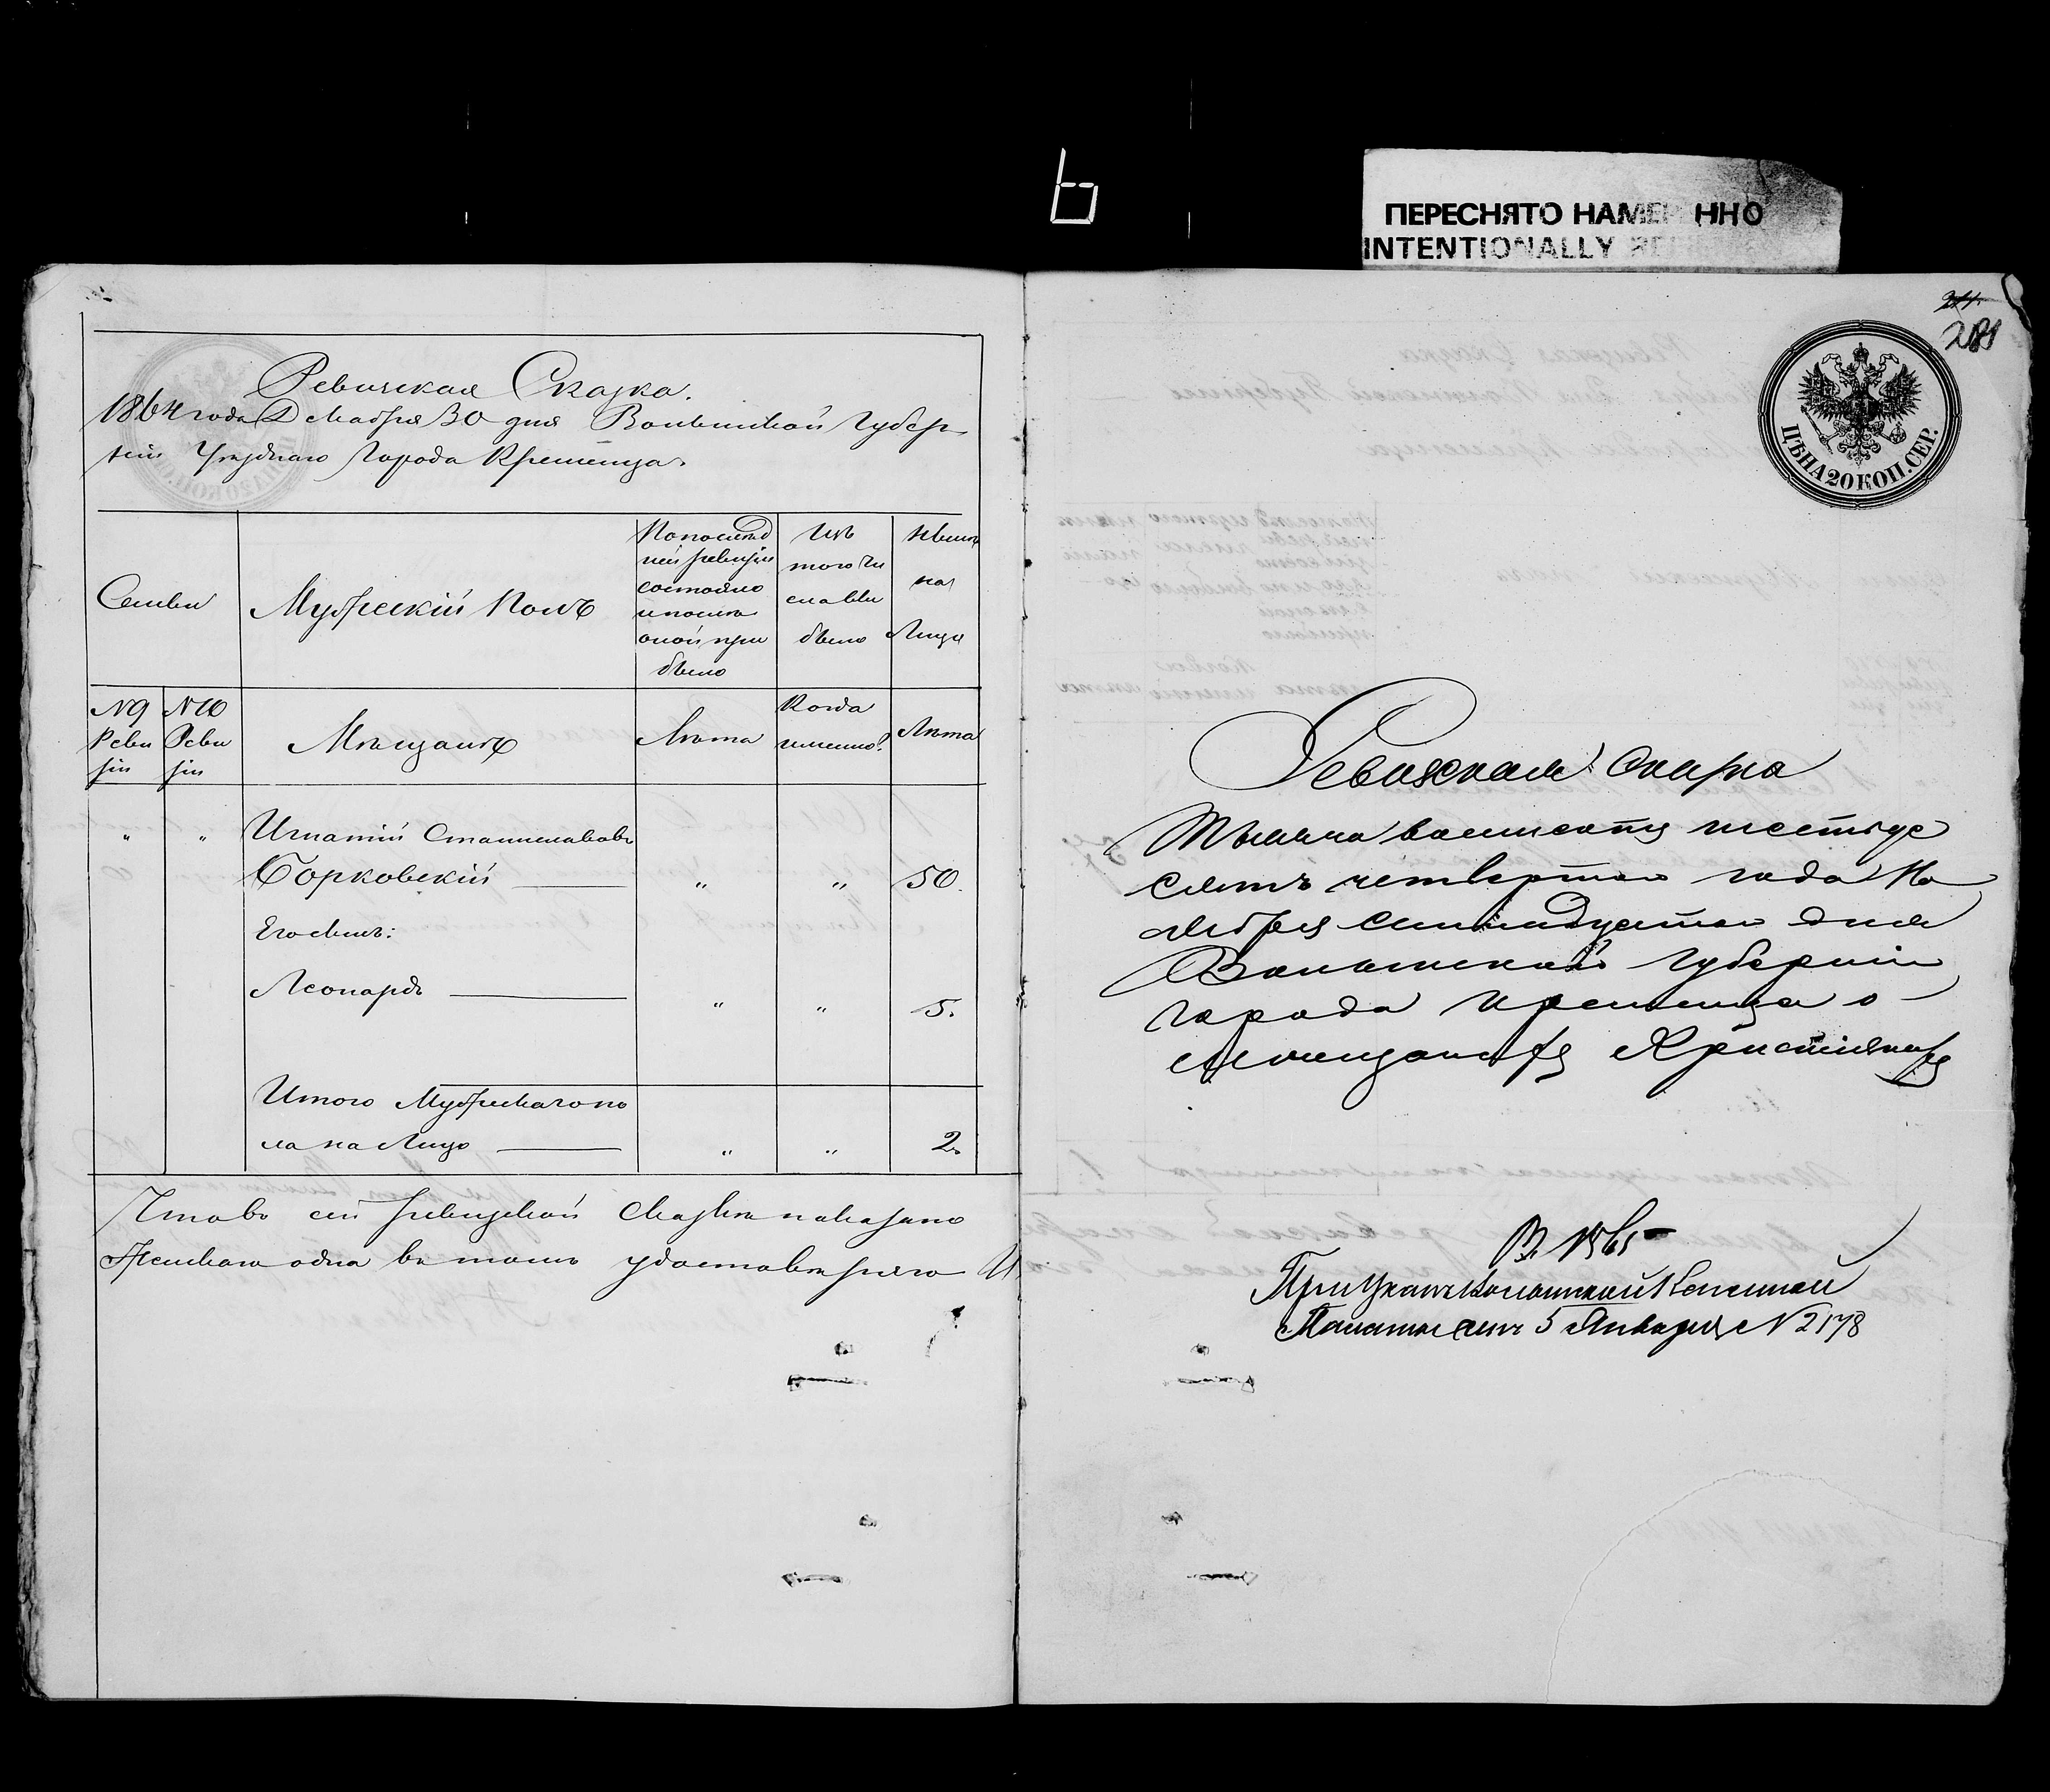 6
ПЕРЕСНЯТО НАМЕ ННО
INTENTIONALLY
Ревизская Сказка.
1864 года Декабря 30 дня Волынской Губер
ніи Уѣзднаго Города Кременца.
Семьи
Мужескій Полъ
По послѣд
ней ревизіи
состояло
и послѣ
оной при
было
Изъ
того чи
сла вы
было
Нынѣ
на
Лице
N 9
Реви
зіи
N 10
Реви
зіи
Мѣщанъ
Лѣта
Когда
именно?
Лѣта
" " Игнатій Станиславовъ
Борковскій " " 50.
Его сынъ:
Леонардъ " " 5.
Итого Мужескаго по
ла на Лицо " " 2.
Что въ сей ревизской сказкѣ показано
281
ЦѢНА 20 КОП. СЕР.
Ревизская Сказка
Тысяча восемсотъ шестьде
сятъ четвертаго года Но
ября семнадцатаго дня
Волынской губерніи
города Кременца о
мѣщанахъ Христіянахъ
При Указѣ Волынской Казенной
Палаты отъ 5 Января N 2178